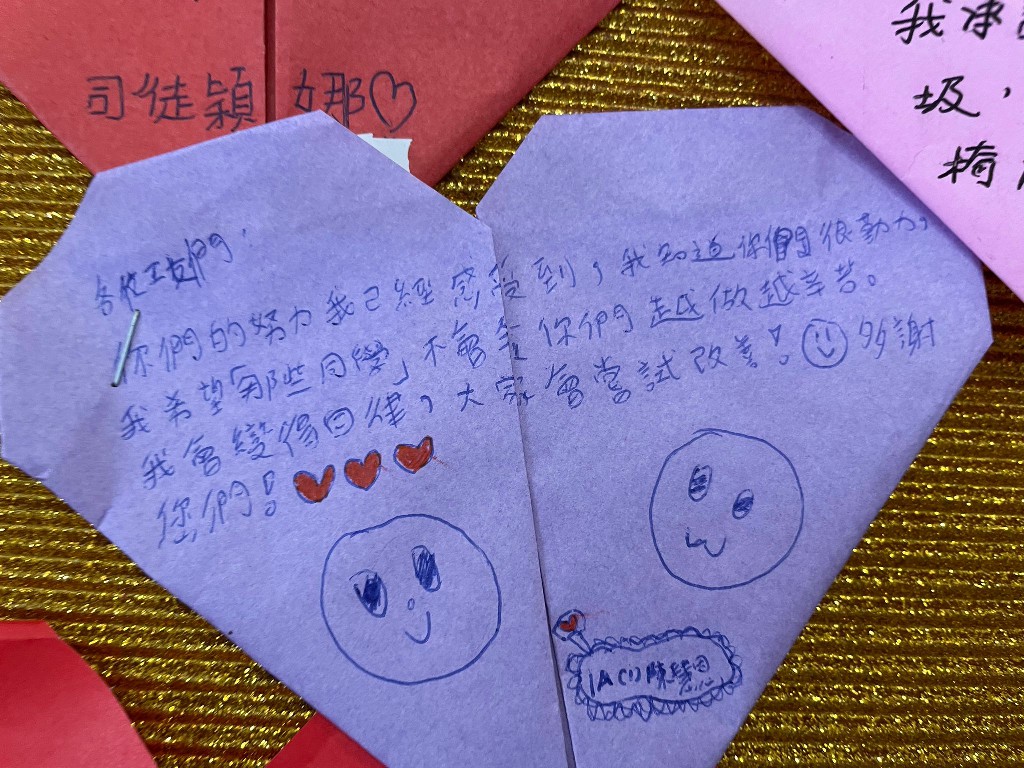 司徒穎娜♡
我承
圾，
椅
各位工友們，
你們的努力我已經感受到，我知道你們很勤力，
我希望「那些同學」不會令你們越做越辛苦。
我會變得回律，大家會嘗試改善！☺多謝
您們！♥♥♥
1A(1)陳慧恩